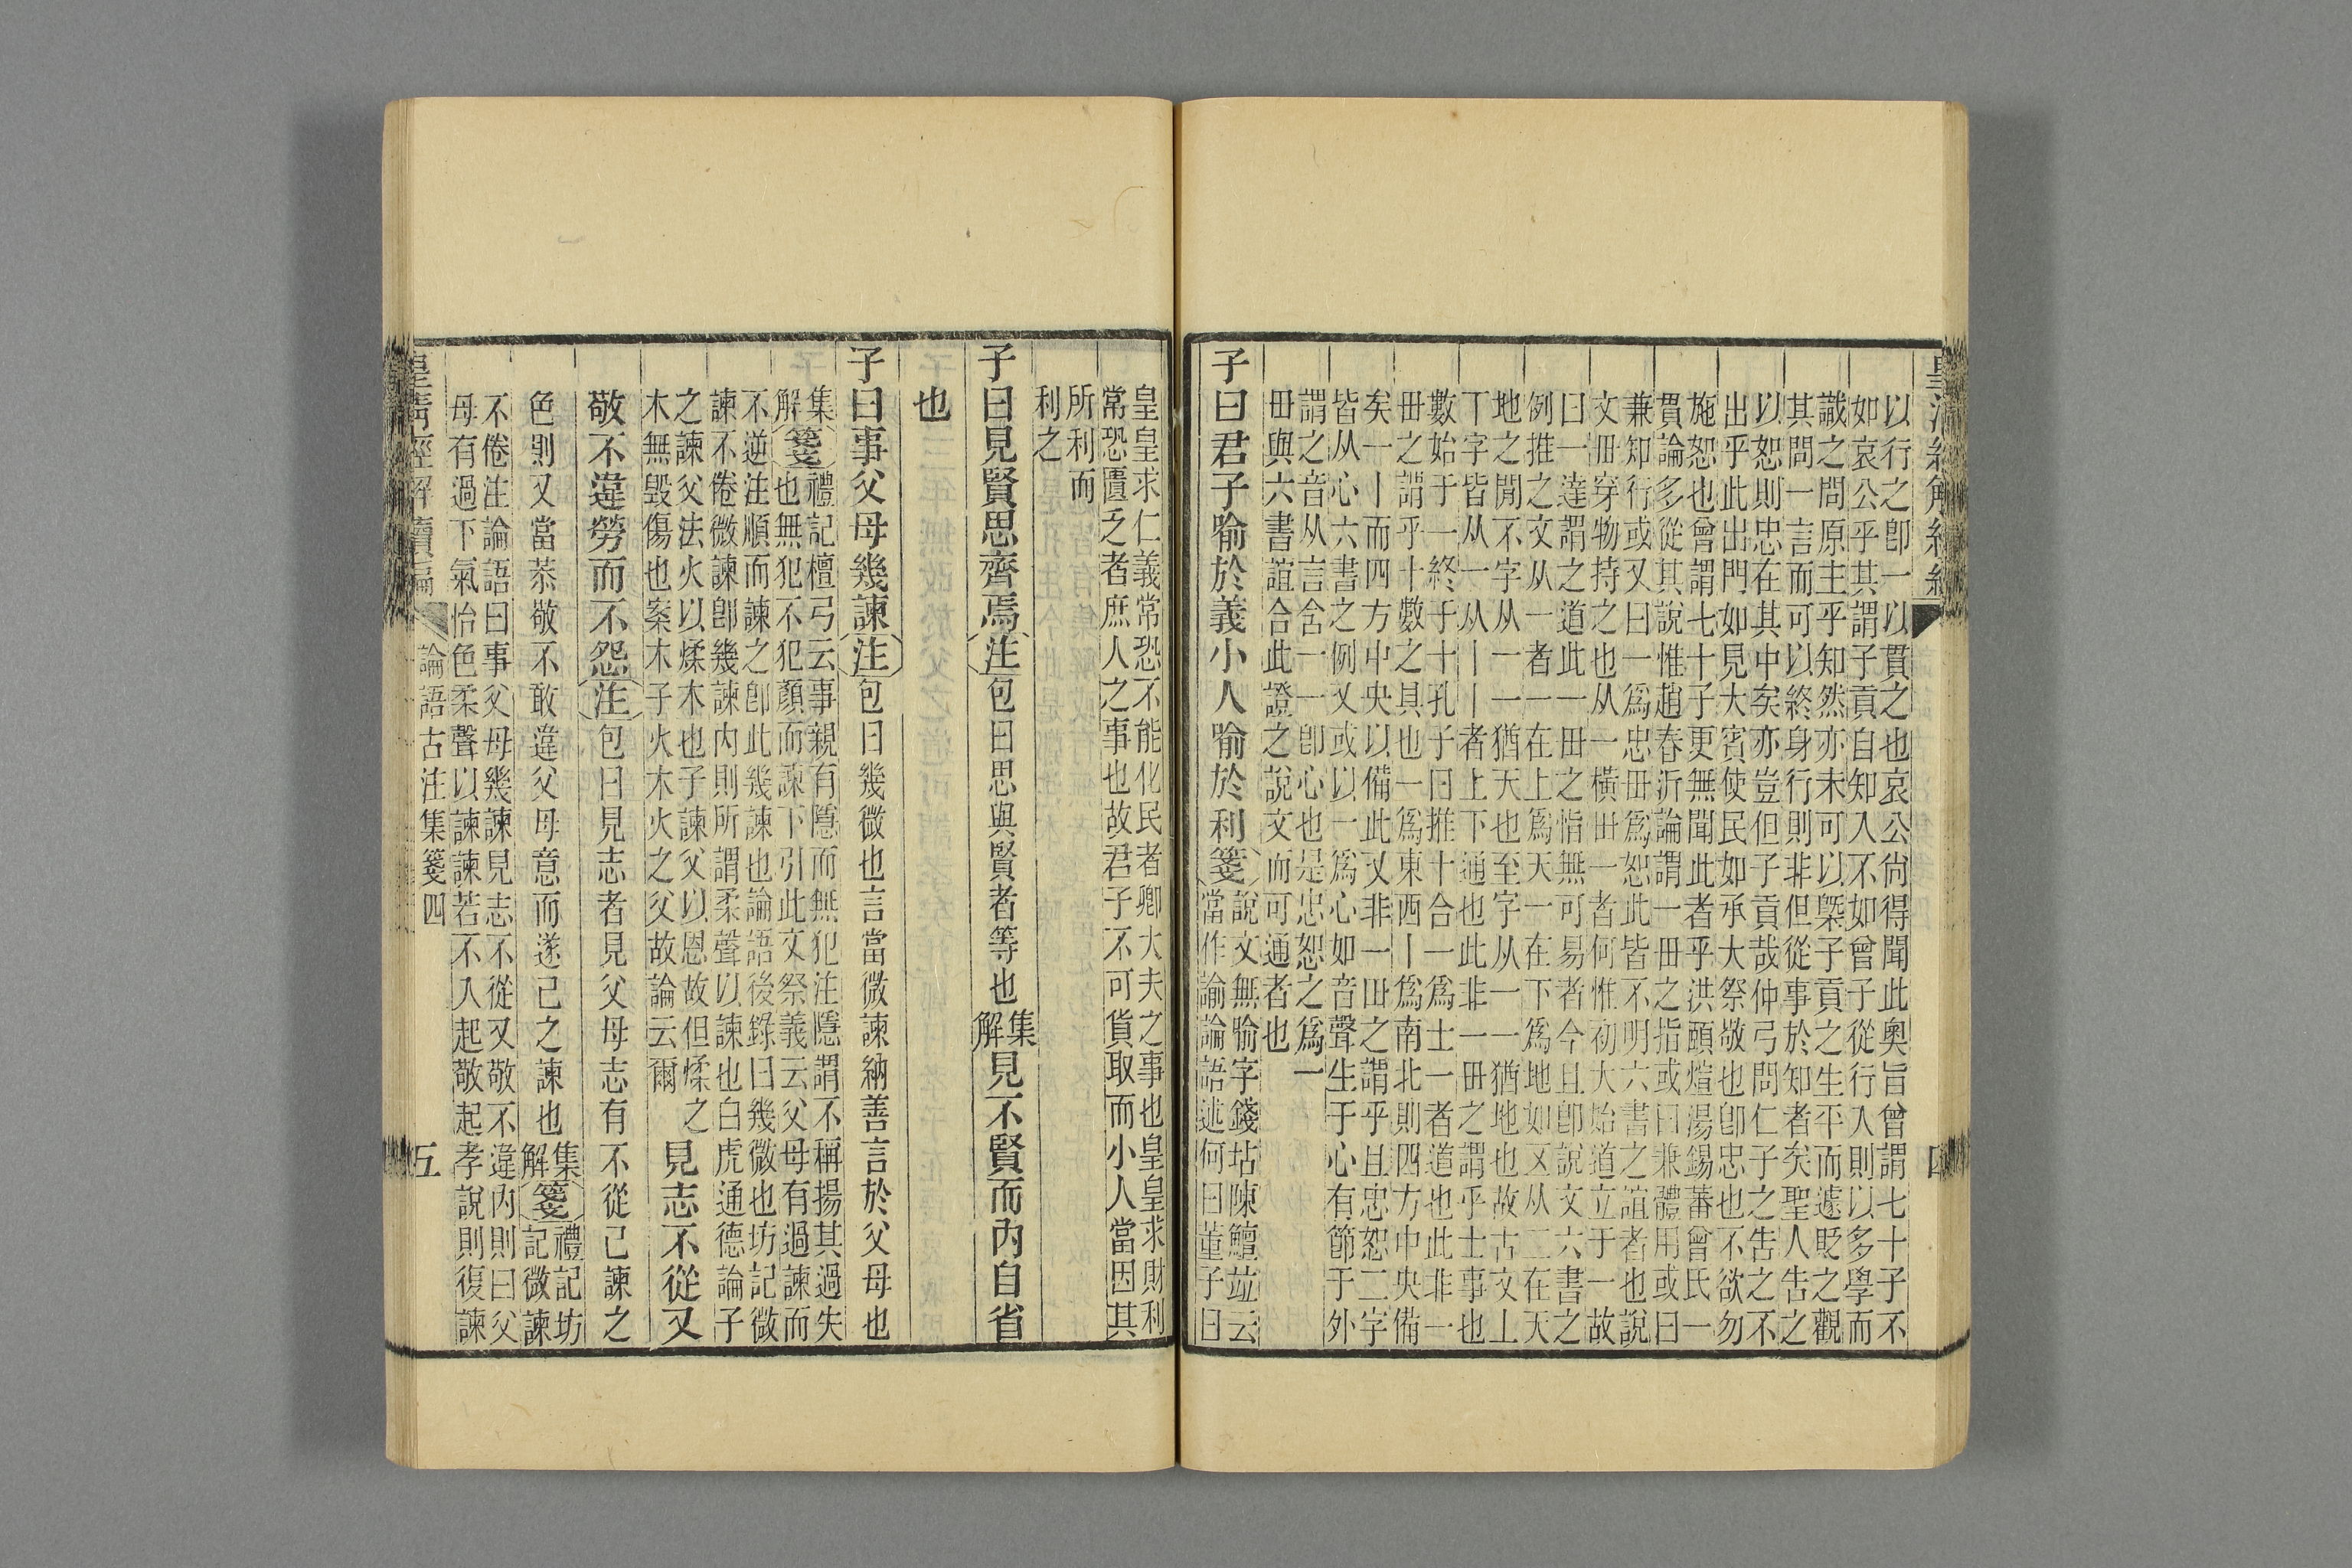 以行之卽一以貫之也哀公尙得聞此奧旨曾謂七十子不
如哀公乎其謂子貢自知入不如曾子從行入則以多學而
識之問原主乎知然亦未可以槩子貢之生平而遽貶之觀
其問一言而可以終身行則非但從事於知者矣聖人告之
以恕則忠在其中矣亦豈但子貢哉仲弓問仁子之告之不
出乎此出門如見大賓使民如承大祭敬也卽忠也不欲勿
施恕也曾謂七十子更無聞此者乎洪頤煊湯錫蕃曾氏一
貫論多從其說惟趙春沂論謂一毌之指或曰兼體用或曰
兼知行或又曰一爲忠毌爲恕此皆不明六書之誼者也說
文毌穿物持之也从一橫毌一者何惟初大始道立于一故
曰一達謂之道此一毌之恉無可易者今且卽說文六書之
例推之文从一者一在上爲天一在下爲地如㐅从二在天
地之閒不字从一一猶天也至字从一一猶地也故古文上
丅字皆从一从丨丨者上下通也此非一毌之謂乎士事也
數始于一終于十孔子曰推十合一爲士一者道也此非一
毌之謂乎十數之具也一爲東西丨爲南北則四方中央備
矣一丨而四方中央以備此又非一毌之謂乎且忠恕二字
皆从心六書之例又或以一爲心如音聲生于心有節于外
謂之音从言含一一卽心也是忠恕之爲一
毌與六書誼合此證之說文而可通者也
子曰君子喻於義小人喻於利箋說文無喻字錢坫陳鱣竝云
當作諭論語述何曰董子曰
皇清經解續編
四
皇皇求仁義常恐不能化民者卿大夫之事也皇皇求財利
常恐匱乏者庶人之事也故君子不可貨取而小人當因其
所利而
利之
子曰見賢思齊焉注包曰思與賢者等也集解見不賢而內自省
也
子曰事父母幾諫注包曰幾微也言當微諫納善言於父母也
集解箋禮記檀弓云事親有隱而無犯注隱謂不稱揚其過失
也無犯不犯顏而諫下引此文祭義云父母有過諫而
不逆注順而諫之卽此幾諫也論語後錄曰幾微也坊記微
諫不倦微諫卽幾諫內則所謂柔聲以諫也白虎通德論子
之諫父法火以煣木也子諫父以恩故但煣之
木無毀傷也案木子火木火之父故論云爾
見志不從又
敬不違勞而不怨注包曰見志者見父母志有不從己諫之
色則又當恭敬不敢違父母意而遂己之諫也集解箋禮記坊
記微諫
不倦注論語曰事父母幾諫見志不從又敬不違內則曰父
母有過下氣怡色柔聲以諫諫若不入起敬起孝說則復諫
皇清經解續編
論語古注集箋四
五